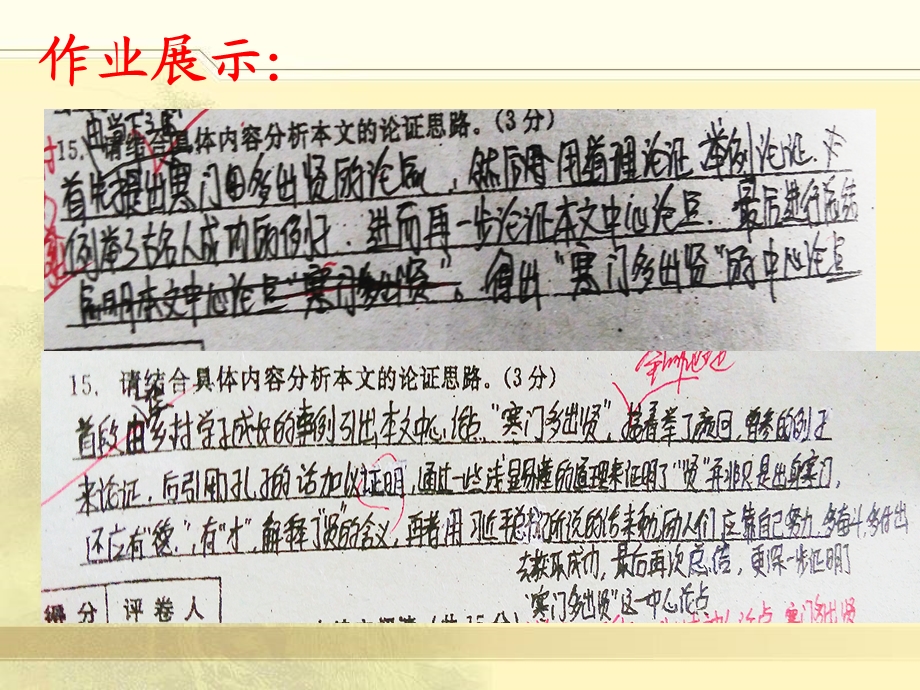 作业展示：
15. 请结合具体内容分析本文的论证思路。(3分)
首先提出寒门多出贤的论点，然后再用道理论证 举例论证.
例举了古名人成功的例子，进而再一步论证本文中心论点. 最后进行总结
本文中心论点"寒门多出贤"。得出"寒门多出贤"的中心论点
15. 请结合具体内容分析本文的论证思路。(3分)
首段由乡村学子成材的事例引出本文中心论点"寒门多出贤"，接着举了颜回，曾参的例子
来论证，后引用孔子的话加以证明，通过一些浅显易懂的道理来证明了"贤"并非只是出身寒门，
还应有"德"，有"才"，解释了"贤"的含义，再着用习近平总书记所说的话来勉励人们应靠自己努力，多奋斗，多付出
去获取成功，最后再次总结，更深一步证明了
"寒门多出贤"这一中心论点
得分 评卷人
寒门多出贤